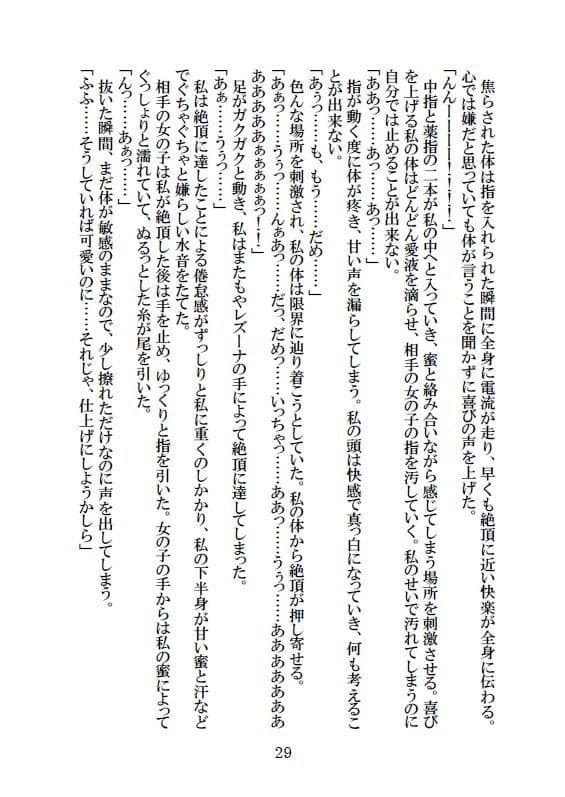 焦らされた体は指を入れられた瞬間に全身に電流が走り、早くも絶頂に近い快楽が全身に伝わる。
心では嫌だと思っていても体が言うことを聞かずに喜びの声を上げた。
「んんーーーーー！！！！」
中指と薬指の二本が私の中へと入っていき、蜜と絡み合いながら感じてしまう場所を刺激させる。喜び
を上げる私の体はどんどん愛液を滴らせ、相手の女の子の指を汚していく。私のせいで汚れてしまうのに
自分では止めることが出来ない。
「ああっ……あっ……あっ……」
指が動く度に体が疼き、甘い声を漏らしてしまう。私の頭は快感で真っ白になっていき、何も考えるこ
とが出来ない。
「あぅっ……も、もう……だめ……」
色んな場所を刺激され、私の体は限界に辿り着こうとしていた。私の体から絶頂が押し寄せる。
「あぁっ……うぅっ……んぁあっ……だっ、だめっ……いっちゃっ……ああっ……うぅっ……あああああああ
ああああああぁぁぁぁっ！！」
足がガクガクと動き、私はまたもやレズーナの手によって絶頂に達してしまった。
「あぁ……うぅっ……」
私は絶頂に達したことによる倦怠感がずっしりと私に重くのしかかり、私の下半身が甘い蜜と汗など
でぐちゃぐちゃと嫌らしい水音をたてた。
相手の女の子は私が絶頂した後は手を止め、ゆっくりと指を引いた。女の子の手からは私の蜜によって
ぐっしょりと濡れていて、ぬるっとした糸が尾を引いた。
「んっ……あぁっ……」
抜いた瞬間、まだ体が敏感のままなので、少し擦れただけなのに声を出してしまう。
「ふふ……そうしていれば可愛いのに……それじゃ、仕上げにしようかしら」
29